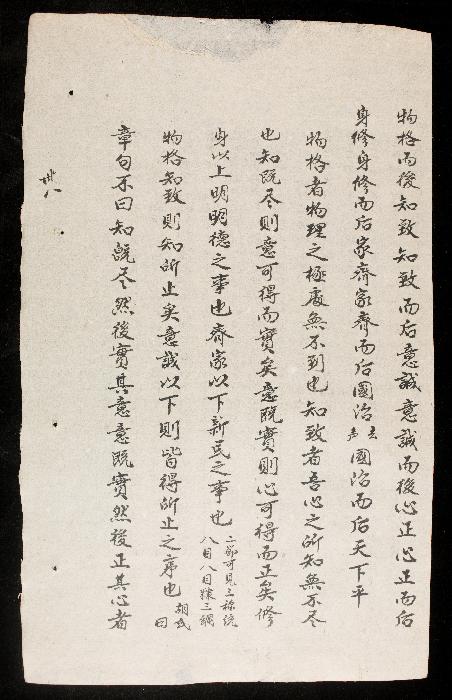 物格而後知致知致而后意誠意誠而後心正心正而后
身修身修而后家齊家齊而后國治去声國治而后天下平
物格者物理之極處無不到也知致者吾心之所知無不尽
也知既尽則意可得而實矣意既實則心可得而正矣修
身以上明明德之事也齊家以下新民之事也二節可見三綱統八目八目隸三綱
物格知致則知所止矣意誠以下則皆得所止之序也胡氏曰
章句不曰知既尽然後實其意意既實然後正其心者
卅八